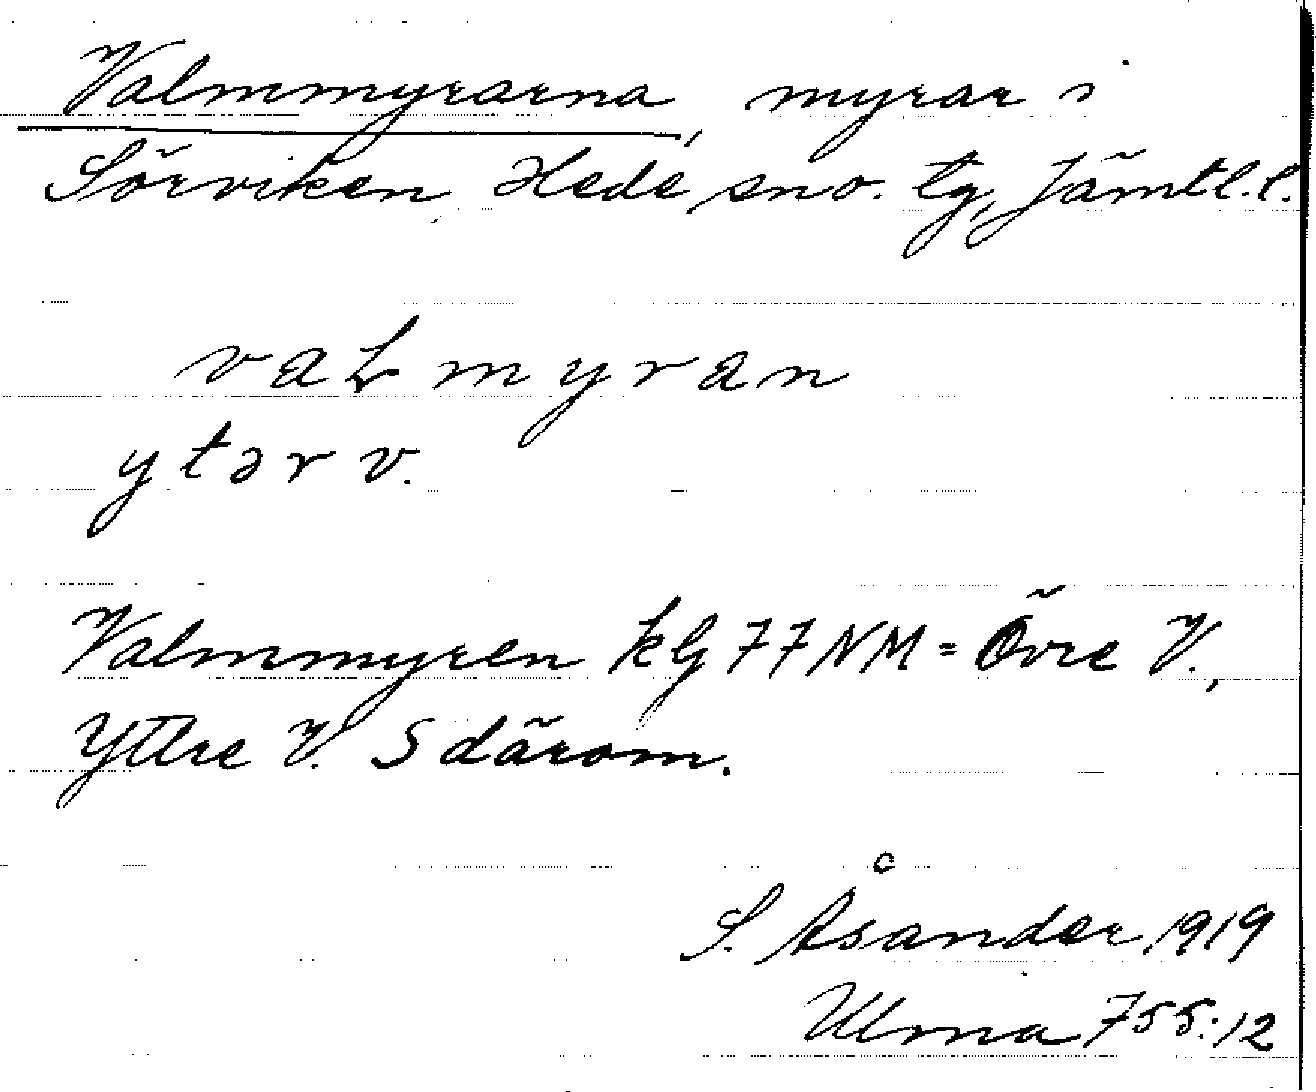 Valmmyrarna, myrar i
Sörviken, Hede, sno. tg, Jämtl.l.
vaLmyran
ytər v.
Valmmyren kG 77NM = Övre V.,
Yttre V. S därom.
S. Åsander 1919
Ulma 755:12